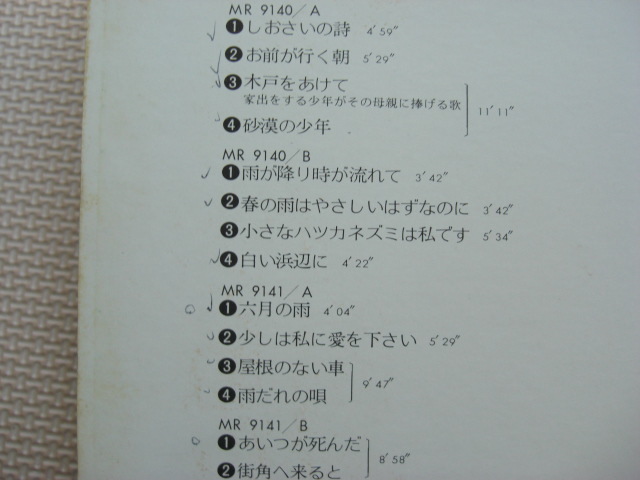 MR 9140/A
❶しおさいの詩 4′59″
❷お前が行く朝 5′29″
❸木戸をあけて
家出をする少年がその母親に捧げる歌
11′11″
❹砂漠の少年
MR 9140/B
❶雨が降り時が流れて 3′42″
❷春の雨はやさしいはずなのに 3′42″
❸小さなハツカネズミは私です 5′34″
❹白い浜辺に 4′22″
MR 9141/A
❶六月の雨 4′04″
❷少しは私に愛を下さい 5′29″
❸屋根のない車
9′47″
❹雨だれの唄
MR 9141/B
❶あいつが死んだ
8′58″
❷街角へ来ると